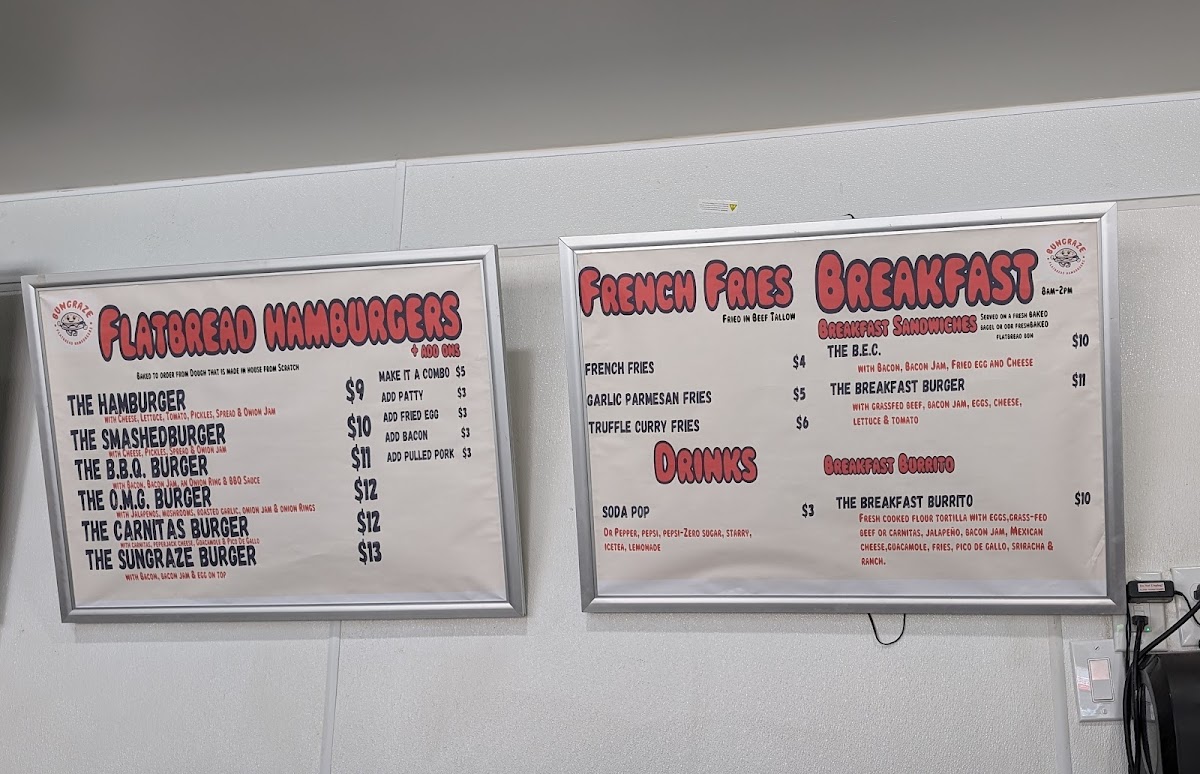 BUNGRAZE
FLATBREAD HAMBURGERS
+ ADD ONS
BAKED TO ORDER FROM DOUGH THAT IS MADE IN HOUSE FROM SCRATCH
THE HAMBURGER $9
WITH CHEESE, LETTUCE, TOMATO, PICKLES, SPREAD & ONION JAM
THE SMASHEDBURGER $10
WITH CHEESE, PICKLES, SPREAD & ONION JAM
THE B.B.Q. BURGER $11
WITH BACON, BACON JAM, AN ONION RING & BBQ SAUCE
THE O.M.G. BURGER $12
WITH JALAPENOS, MUSHROOMS, ROASTED GARLIC, ONION JAM & ONION RINGS
THE CARNITAS BURGER $12
WITH CARNITAS, PEPERJACK CHEESE, GUACAMOLE & PICO DE GALLO
THE SUNGRAZE BURGER $13
WITH BACON, BACON JAM & EGG ON TOP
MAKE IT A COMBO $5
ADD PATTY $3
ADD FRIED EGG $3
ADD BACON $3
ADD PULLED PORK $3
FRENCH FRIES
FRIED IN BEEF TALLOW
FRENCH FRIES $4
GARLIC PARMESAN FRIES $5
TRUFFLE CURRY FRIES $6
DRINKS
SODA POP $3
DR PEPPER, PEPSI, PEPSI-ZERO SUGAR, STARRY,
ICETEA, LEMONADE
BREAKFAST
BUNGRAZE
FLATBREAD HAMBURGERS
8AM-2PM
BREAKFAST SANDWICHES
SERVED ON A FRESH BAKED
BAGEL OR OUR FRESHBAKED
FLATBREAD BUN
THE B.E.C. $10
WITH BACON, BACON JAM, FRIED EGG AND CHEESE
THE BREAKFAST BURGER $11
WITH GRASSFED BEEF, BACON JAM, EGGS, CHEESE,
LETTUCE & TOMATO
BREAKFAST BURRITO
THE BREAKFAST BURRITO $10
FRESH COOKED FLOUR TORTILLA WITH EGGS,GRASS-FED
BEEF OR CARNITAS, JALAPEÑO, BACON JAM, MEXICAN
CHEESE,GUACAMOLE, FRIES, PICO DE GALLO, SRIRACHA &
RANCH.